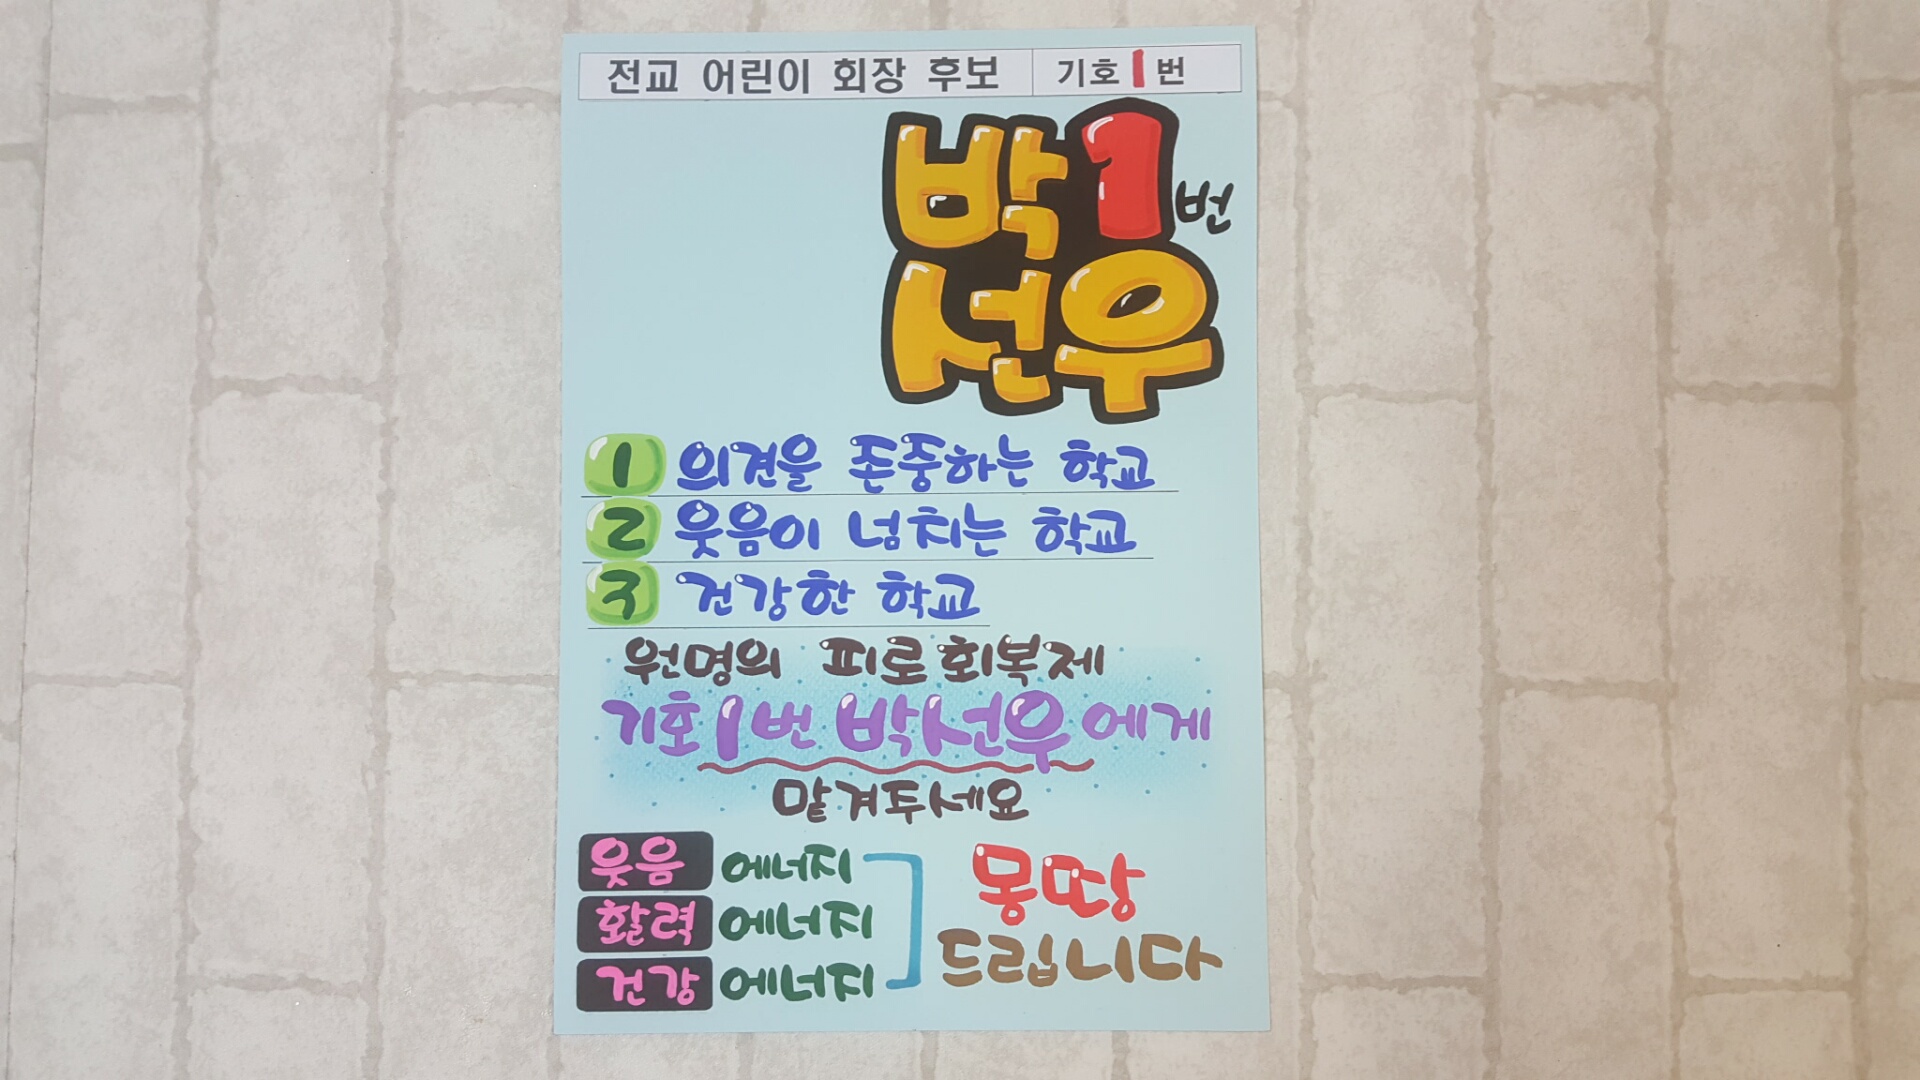 전교 어린이 회장 후보 기호 1 번
박 1 번
선우
1 의견을 존중하는 학교
2 웃음이 넘치는 학교
3 건강한 학교
원명의 피로회복제
기호 1번 박선우에게
맡겨두세요
웃음 에너지
활력 에너지
건강 에너지
몽땅
드립니다